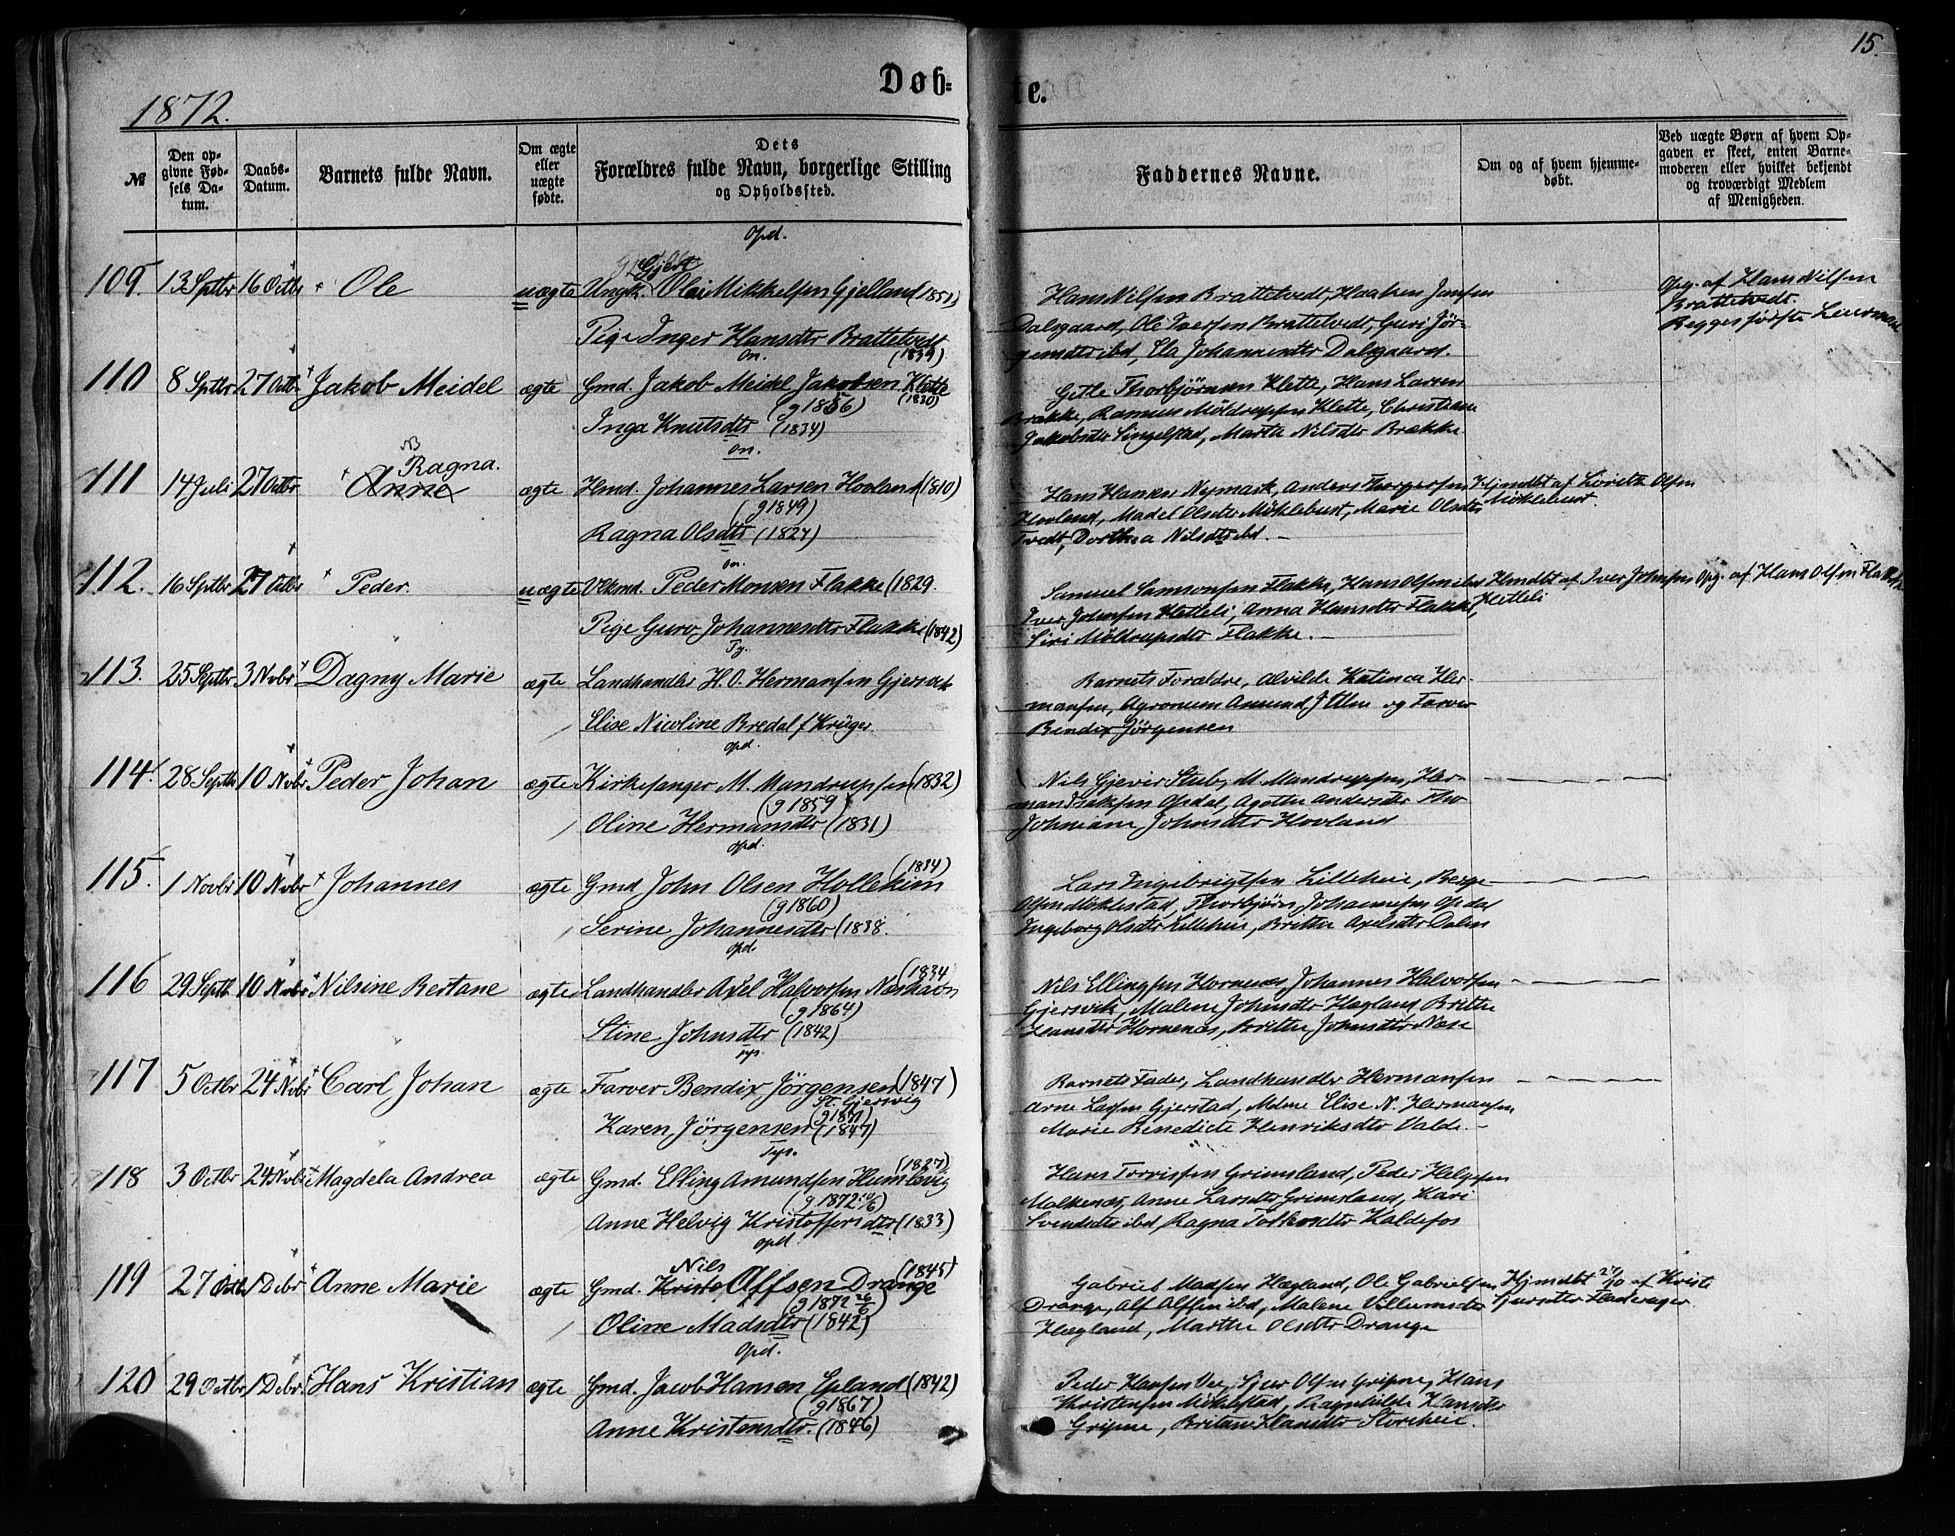 15.
Døb=
te.
1872.
№
Den op-
givne Fød-
sels Da-
tum.
Daabs-
Datum.
Barnets fulde Navn.
Om ægte
eller
uægte
fødte.
Dets
Forældres fulde Navn, borgerlige Stilling
og Opholdssted.
Faddernes Navne.
Om og af hvem hjemme-
døbt.
Ved uægte Børn af hvem Op-
gaven er skeet, enten Barne-
moderen eller hvilket bekjendt
og troværdigt Medlem
af Menigheden.
Opd.
Gjert
109. 13 Septbr 16 Octbr Ole uægte Ungk. Mikkelsen Gjelland (1851)
Pige Inger Hansdtr Brattetvedt
(1839)
Hans Nilsen Brattetvedt, Haaken Jansen
Dalsgaard, Ole Iversen Brattetvedt, Guri Jør-
gensdtr ibd, Ela Johannesdtr Dalsgaard.
Opg. af Hans Nilsen
Brattetvedt.
Begges første Leierm
On.
110 8 Septbr 27 Octbr Jakob Meidel ægte Gmd. Jakob Meidel Jakobsen Klette
(1830)
(g 1856)
Inga Knutsdtr (1834)
Gitle Thorbjørnsen Klette, Hans Larsen
Brække, Rasmus Möldrupsen Klette, Christiane
Jakobsdtr Singelstad, Marta Nilsdtr Brække
On.
NB
Ragna.
111 14 Juli 27 Octbr Anne ægte Hmd. Johannes Larsen Hovland (1810)
(g 1849)
Ragna Olsdtr (1827)
Hans Hansen Nymark, Anders Thorgersen
Hovland, Madel Olsdtr Möklebust, Marie Olsdtr
Tvedt, Dorthea Nilsdtr ibd. –
Hjmdbt af Olsen
Möklebust.
On.
112. 16 Septbr 27 Octbr Peder. uægte Peder Monsen Flakke (1829.
Pige Guro Johannesdtr Flakke (1842)
Samuel Samsonsen Flakke, Hans Olsen ibd
Iver Johnsen Hetleli, Anna Hansdtr Flakke,
Siri Möldrupsdtr Flakke. –
Hmdbt af Iver Johnsen
Hetleli
Opg. af Hans Olsen Flakke
Ty.
113. 25 Septbr 3 Nvbr Dagny Marie ægte Landhandler H. O. Hermansen Gjersvik
Elise Nicoline Bredal f Krüger
Barnets Forældre, Alvilde Katinca Her-
mansen, Agronom Amund J Ulen og Farver
Bendix Jörgensen
Opd.
114. 28 Septbr 10 Nvbr Peder Johan ægte Kirkesanger M. Mandrupsen (1832)
(g 1859)
Oline Hermansdtr (1831)
Nils Gjever Stub, M. Mandrupsen, Her-
man Isaksen Opdal, Agathe Andersdtr
Johniane Johnsdtr Hovland
Opd.
115. 1 Novbr 10 Nvbr Johannes ægte Gmd John Olsen Holleheim
(1834)
(g 1860)
Serine Johannesdtr (1838.
Lars Ingebrigtsen Lilleheie, Berge
Olsen Möklestad, Thorbjörn Johannesen Opdal
Ingeborg Olsdtr Lilleheie, Brithe Axelsdtr Dalen
Opd.
116 29 Septb. 10 Nvbr Nilsine Bertane ægte Landhandler Axel Halvorsen Næshavn
(1834
(g 1864)
Stine Johnsdtr (1842)
Nils Ellingsen Hornenæs, Johannes Halvorsen
Gjersvik, Malene Johnsdtr Hægland, Brithe
Hansdtr Hornenæs, Brithe Johnsdtr Næse
Tys.
117 5 Octbr 24 Nvbr Carl Johan ægte Farver Bendix Jörgensen (1847)
St. Gjersvig
(g 1871)
Karen Jörgensen (1847)
Barnets Fader, Landhandler Hermansen
Arne Larsen Gjerstad, Mdme Elise N. Hermansen
Marie Benedicte Henriksdtr Valde. –
Tys.
118 3 Octbr 24 Nvbr Magdela Andrea ægte Gmd. Elling Amundsen Humlevig
(1827)
(g 1872
Anne Helvig Kristoffersdtr (1833)
Hans Torrisen Grimsland, Peder Helgesen
Malkenæs, Anne Larsdtr Grimsland, Kari
Svendsdtr ibd, Ragna Tolleosdtr Kaldefos
Opd.
Nils
119 27 Octbr 1 Debr Anne Marie ægte Gmd. Kristo Alfsen Drange
(1845)
(g 1872 26/6)
Oline Madsdtr (1842)
Gabriel Madsen Hægland, Ole Gabrielsen
Drange, Alf Alfsen ibd, Malene Villumsdtr
Hægland, Marthe Olsdtr Drange
Hjmdbt 29/10 af Kristi
Sjursdtr Fladerager
Opd.
120 29 Octbr 1 Debr. Hans Kristian ægte Gmd. Jacob Hansen Epland (1842)
(g 1867)
Anne Kristensdtr. (1846)
Peder Hansen Vee, Sjur Olsen Gripne, Hans
Kristensen Möklestad, Ragnhilde Hansdtr
Gripne, Britane Hansdtr Storeheie.